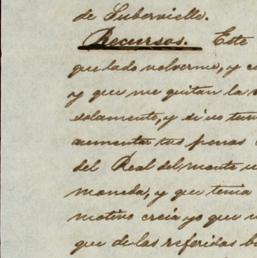 de Subervielle.
Recursos. Este
que lado volverme, y c
y que me quitan la v
solamente, y si no tun
aumentar tus penas
del Real del monte u
moneda, y que tenia
motivo creia yo que u
que de las referidas ba